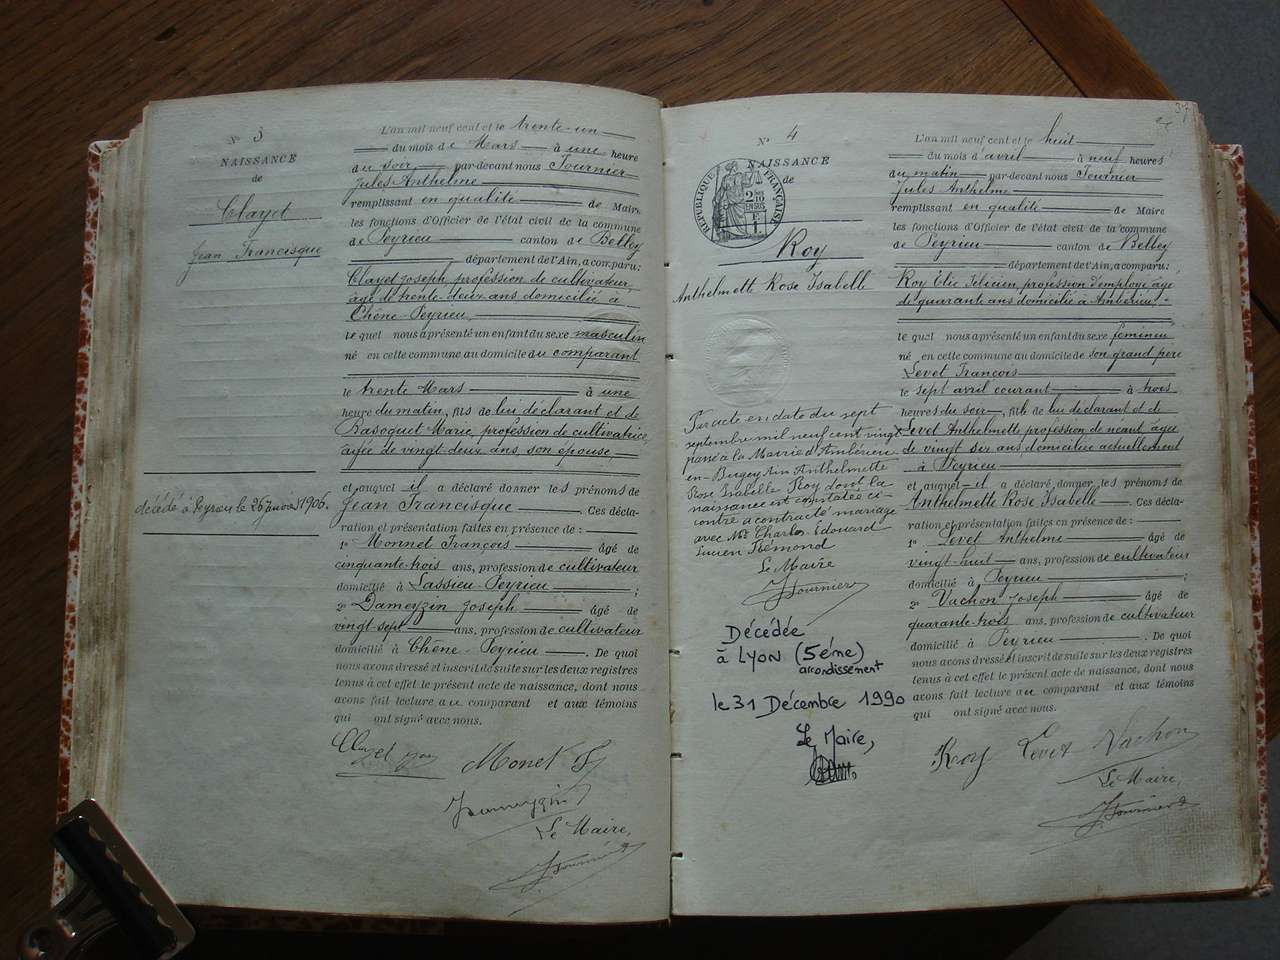 N° 3
NAISSANCE
de
Clayet
Jean Francisque
décédé à Peyrieu le 26 janvier 1906.
L'an mil neuf cent et le trente-un
du mois de Mars à une heure
du soir par-devant nous Fournier
Jules Anthelme
remplissant en qualité de Maire
les fonctions d'Officier de l'état civil de la commune
de Peyrieu canton de Belley
département de l'Ain, a comparu:
Clayet Joseph, profession de cultivateur,
âgé de trente-deux ans domicilié à
Chêne-Peyrieu
lequel nous a présenté un enfant du sexe masculin
né en cette commune au domicile du comparant
le trente Mars à une
heure du matin, fils de lui déclarant et de
Marie, profession de cultivatrice,
âgée de vingt-deux ans, son épouse,
et auquel il a déclaré donner les prénoms de
Jean Francisque Ces décla-
ration et présentation faites en présence de:
1° Monnet François âgé de
cinquante-trois ans, profession de cultivateur
domicilié à Lassieu-Peyrieu ;
2° Dameyzin Joseph âgé de
vingt-sept ans, profession de cultivateur
domicilié à Chêne-Peyrieu. De quoi
nous avons dressé et inscrit de suite sur les deux registres
tenus à cet effet le présent acte de naissance, dont nous
avons fait lecture au comparant et aux témoins
qui ont signé avec nous.
Clayet
Monet F
Dameyzin J
Le Maire,
J Fournier
37
N° 4
NAISSANCE
de
RÉPUBLIQUE FRANÇAISE
2/10
EN SUS
Roy
Anthelmette Rose Isabelle
Par acte en date du sept
septembre mil neuf cent vingt
passé à la Mairie d'Ambérieu-
en-Bugey Ain Anthelmette
Rose Isabelle Roy dont la
naissance est constatée ci-
contre a contracté mariage
avec Mr Charles Edouard
Lucien Rémond
Le Maire
J Fournier
Décédée
à LYON (5éme)
arrondissement
le 31 Décembre 1990
Le Maire,
L'an mil neuf cent et le huit
du mois d'avril à neuf heures
du matin par-devant nous Fournier
Jules Anthelme
remplissant en qualité de Maire
les fonctions d'Officier de l'état civil de la commune
de Peyrieu canton de Belley
département de l'Ain, a comparu:
Roy Elie Félicien, profession d'employé âgé
de quarante ans domicilié à Ambérieu
lequel nous a présenté un enfant du sexe féminin
né en cette commune au domicile de son grand père
Levet François
le sept avril courant à trois
heures du soir, fille de lui déclarant et de
Levet Anthelmette profession de néant âgée
de vingt six ans domiciliée actuellement
à Peyrieu
et auquel il a déclaré donner les prénoms de
Anthelmette Rose Isabelle. Ces décla-
ration et présentation faites en présence de:
1° Levet Anthelme âgé de
vingt-huit ans, profession de cultivateur
domicilié à Peyrieu ;
2° Vachon Joseph âgé de
quarante-trois ans, profession de cultivateur
domicilié à Peyrieu. De quoi
nous avons dressé et inscrit de suite sur les deux registres
tenus à cet effet le présent acte de naissance, dont nous
avons fait lecture au comparant et aux témoins
qui ont signé avec nous.
Roy Levet Vachon
Le Maire,
J Fournier